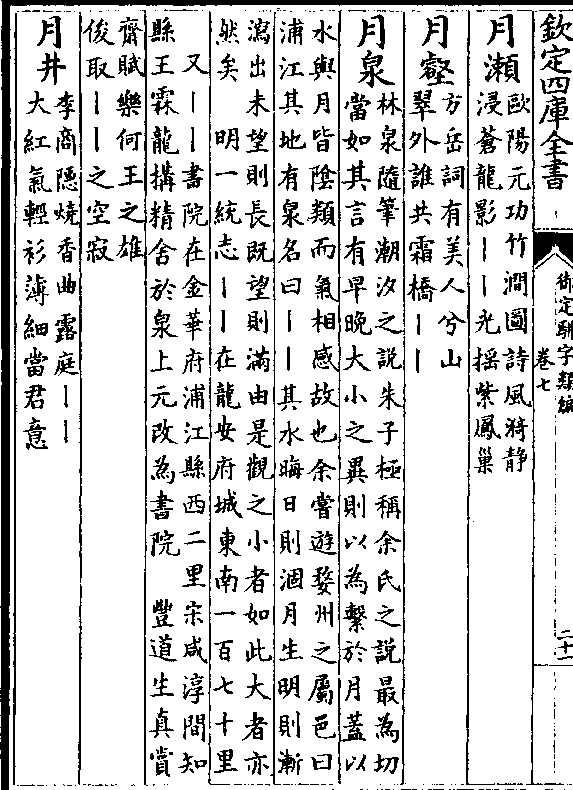 欽定四庫全書
御定駢字類編
卷七
二十一
月瀨
歐陽元功竹澗圖詩風漪静
浸蒼龍影丨丨光揺紫鳳巢
月壑
方岳詞有美人兮山
翠外誰共霜橋丨丨
月泉
林泉隨筆潮汐之説朱子極稱余氏之説最為切
當如其言有早晚大小之異則以為繫於月蓋以
水與月皆隂類而氣相感故也余嘗遊婺州之屬邑曰
浦江其地有泉名曰丨丨其水晦日則涸月生明則漸
瀉出未望則長既望則滿由是觀之小者如此大者亦
然矣　明一統志丨丨在龍安府城東南一百七十里
又丨丨書院在金華府浦江縣西二里宋咸淳間知
縣王霖龍搆精舍於泉上元改為書院　豐道生真賞
齋賦樂何王之雄
俊取丨丨之空寂
月井
李商隠燒香曲露庭丨丨
大紅氣輕衫薄細當君意